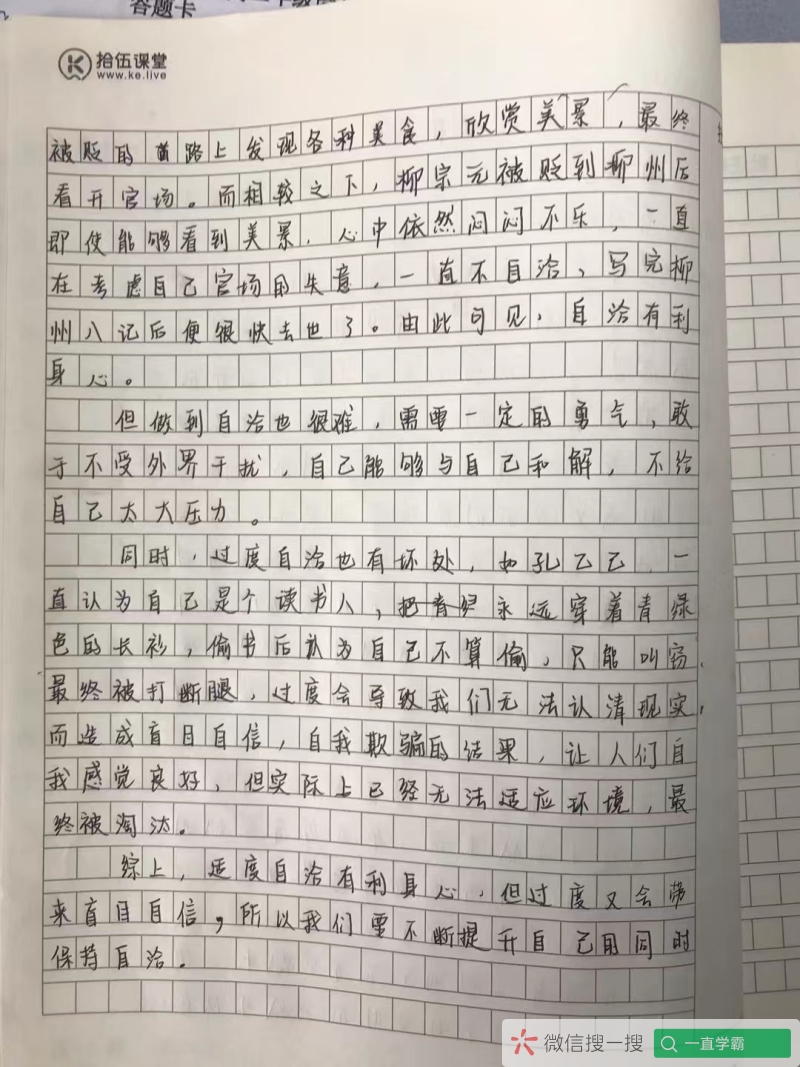 答题卡
拾伍课堂
www.ke.live
被贬的首路上发现各种美食，欣赏美景，最终
看开官场。而相较之下，柳宗元被贬到柳州后
即使能够看到美景，心中依然闷闷不乐，一直
在考虑自己官场的失意，一直不自洽，写完柳
州八记后便很快去世了。由此可见，自洽有利
身心。
但做到自洽也很难，需要一定的勇气，敢
于不受外界干扰，自己能够与自己和解，不给
自己太大压力。
同时，过度自洽也有坏处，如孔乙己，一
直认为自己是个读书人，永远穿着青绿
色的长衫，偷书后认为自己不算偷，只能叫窃，
最终被打断腿，过度会导致我们无法认清现实，
而造成盲目自信，自我欺骗的结果，让人们自
我感觉良好，但实际上已经无法适应环境，最
终被淘汰。
综上，适度自洽有利身心，但过度又会带
来盲目自信，所以我们要不断提升自己的同时
保持自洽。
微信搜一搜
一直学霸